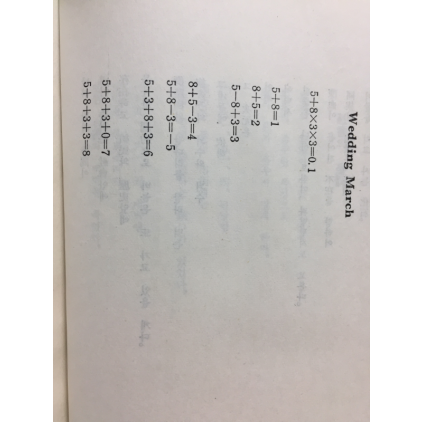 Wedding March
5+8×3×3=0.1
5+8=1
8+5=2
5—8+3=3
8+5—3=4
5+8—3=—5
5+3+8+3=6
5+8+3+0=7
5+8+3+3=8